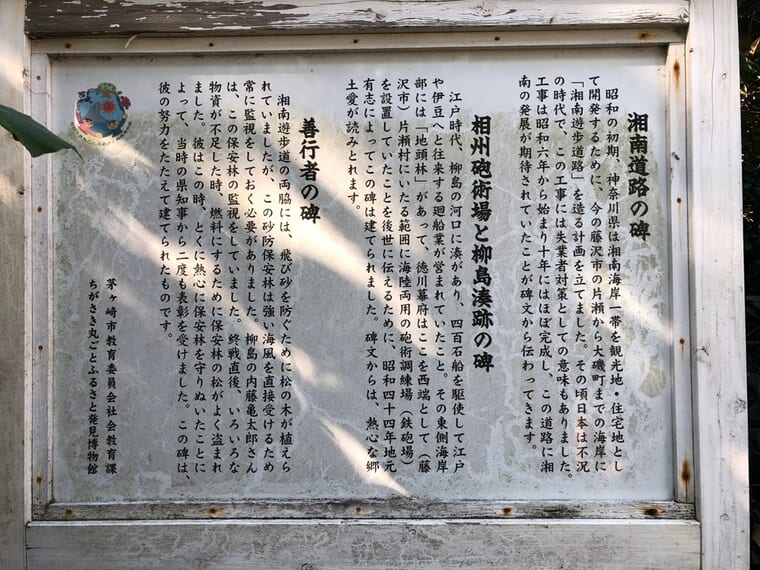 湘南道路の碑
昭和の初期、神奈川県は湘南海岸一帯を観光地・住宅地とし
て開発するために、今の藤沢市の片瀬から大磯町までの海岸に
「湘南遊歩道路」を造る計画を立てました。その頃日本は不況
の時代で、この工事には失業者対策としての意味もありました。
工事は昭和六年から始まり十年にはほぼ完成し、この道路に湘
南の発展が期待されていたことが碑文から伝わってきます。
相州砲術場と柳島湊跡の碑
江戸時代、柳島の河口に湊があり、四百石船を駆使して江戸
や伊豆へと往来する廻船業が営まれていたこと。その東側海岸
部には「地頭林」があって、徳川幕府はここを西端として（藤
沢市）片瀬村にいたる範囲に海陸両用の砲術調練場（鉄砲場）
を設置していたことを後世に伝えるために、昭和四十四年地元
有志によってこの碑は建てられました。碑文からは、熱心な郷
土愛が読みとれます。
善行者の碑
湘南遊歩道の両脇には、飛び砂を防ぐために松の木が植えら
れていましたが、この砂防保安林は強い海風を直接受けるため
常に監視をしておく必要がありました。柳島の内藤亀太郎さん
は、この保安林の監視をしていました。終戦直後、いろいろな
物資が不足した時、燃料にするために保安林の松がよく盗まれ
ました。彼はこの時、とくに熱心に保安林を守りぬいたことに
よって、当時の県知事から二度も表彰を受けました。この碑は、
彼の努力をたたえて建てられたものです。
茅ヶ崎市教育委員会社会教育課
ちがさき丸ごとふるさと発見博物館